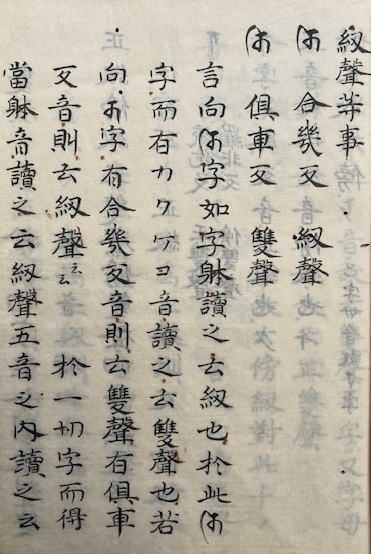 紉聲䒭事
𑖎 合幾反 紉聲
𑖎 俱車反 雙聲
言向𑖎字如字躰讀之云紉也於此𑖎
字而有カクケコ音讀之云雙聲也若
向𑖎字有合幾反音則云雙聲有俱車
反音則云紉聲云云 於一切字而得
當躰音讀之云紉聲五音之內讀之云